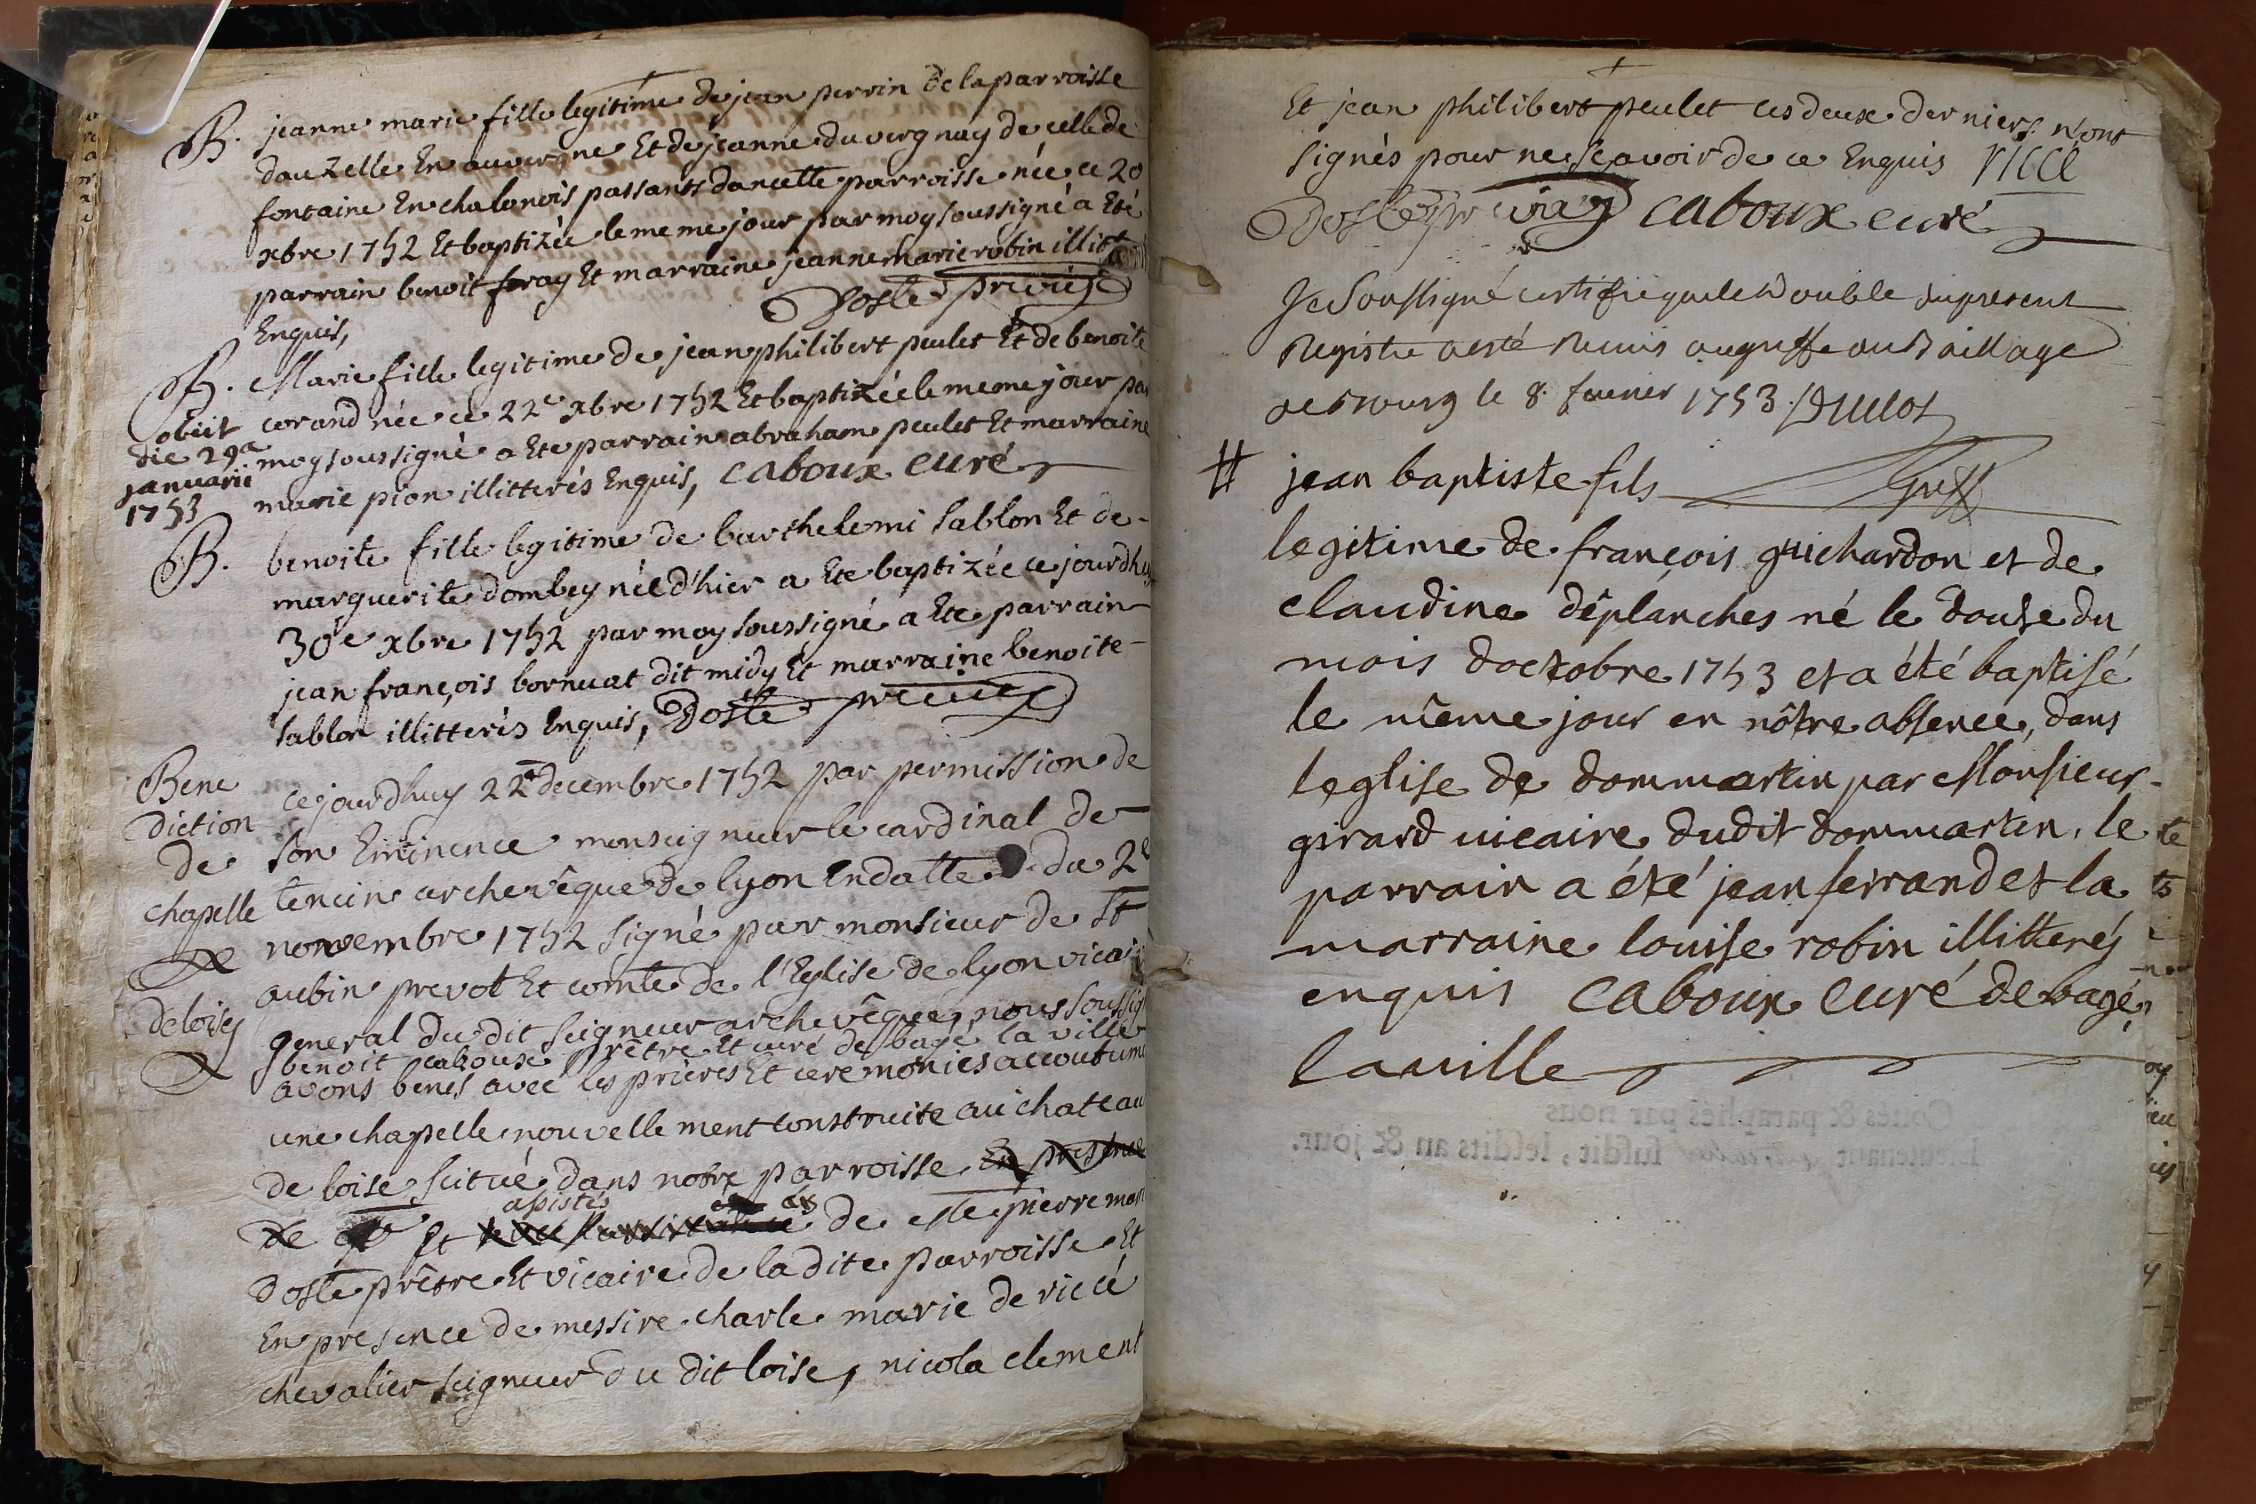 B. jeanne marie fille legitime de jean perrin de la parroisse
dauzelle En auvergne Et de jeanne du vergnay de celle de
fontaine En chalonois passants dancette parroisse née ce 20
xbre 1752 Et baptizée le meme jour par moy soussigné a Eté
parrain benoit foray Et marraine jeanne marie robin illitt
Enquis,
B. Marie fille legitime de jean philibert peulet Et de benoite
corand née ce 22e xbre 1752 Et baptizée le meme jour par
moy soussigné a Ete parrain abraham peulet Et marraine
marie pion illitterés Enquis, caboux curé
obiit
die 29a
januarii
1753
B. benoite fille legitime de barthelemi sablon Et de
marguerite dombey née d'hier a Ete baptizée ce jourdhuy
30e xbre 1752 par moy soussigné a Ete parrain
jean françois bornuat dit midy Et marraine benoite
sablon illitterés Enquis, Doste
Bene
diction
de
chapelle
de loisey
ce jourdhuy 22e decembre 1752 par permission de
son Eminence monseigneur le cardinal de
tencin archevêque de lyon En datte du 2e
novembre 1752 signé par monsieur de St
aubin prevot Et comte de l'Eglise de lyon vicair
general du dit seigneur archevêque, nous soussig
benoit caboux prêtre Et curé de bagé la ville
avons benis avec les prieres Et ceremonies accoutumé
une chapelle nouvellement construite au chateau
de loise scitué dans notre parroisse En presence
de Et apisté de este pierre mar
doste prêtre Et vicaire de la dite parroisse Et
En presence de messire charle marie de riccé
chevalier seigneur du dit loise, nicola clement
Et jean philibert peulet ces deux derniers n'ont
signés pour ne scavoir de ce Enquis riccé
Doste caboux curé
Je soussigné certifie que le double du present
Registre a esté remis au greffe du Baillage
de Bourg le 8 feurier 1753
# jean baptiste fils
legitime de françois guichardon et de
claudine déplanches né le douse du
mois doctobre 1753 et a été baptisé
le même jour en nôtre absence, dans
leglise de dommartin par Monsieur
girard uicaire dudit dommartin, le
parrain a été jean ferrand et la
marraine louise robin illitterés
enquis caboux curé de bagé
lauille
Cottés & paraphés par nous
Lieutenant susdit, lesdits an & jour.